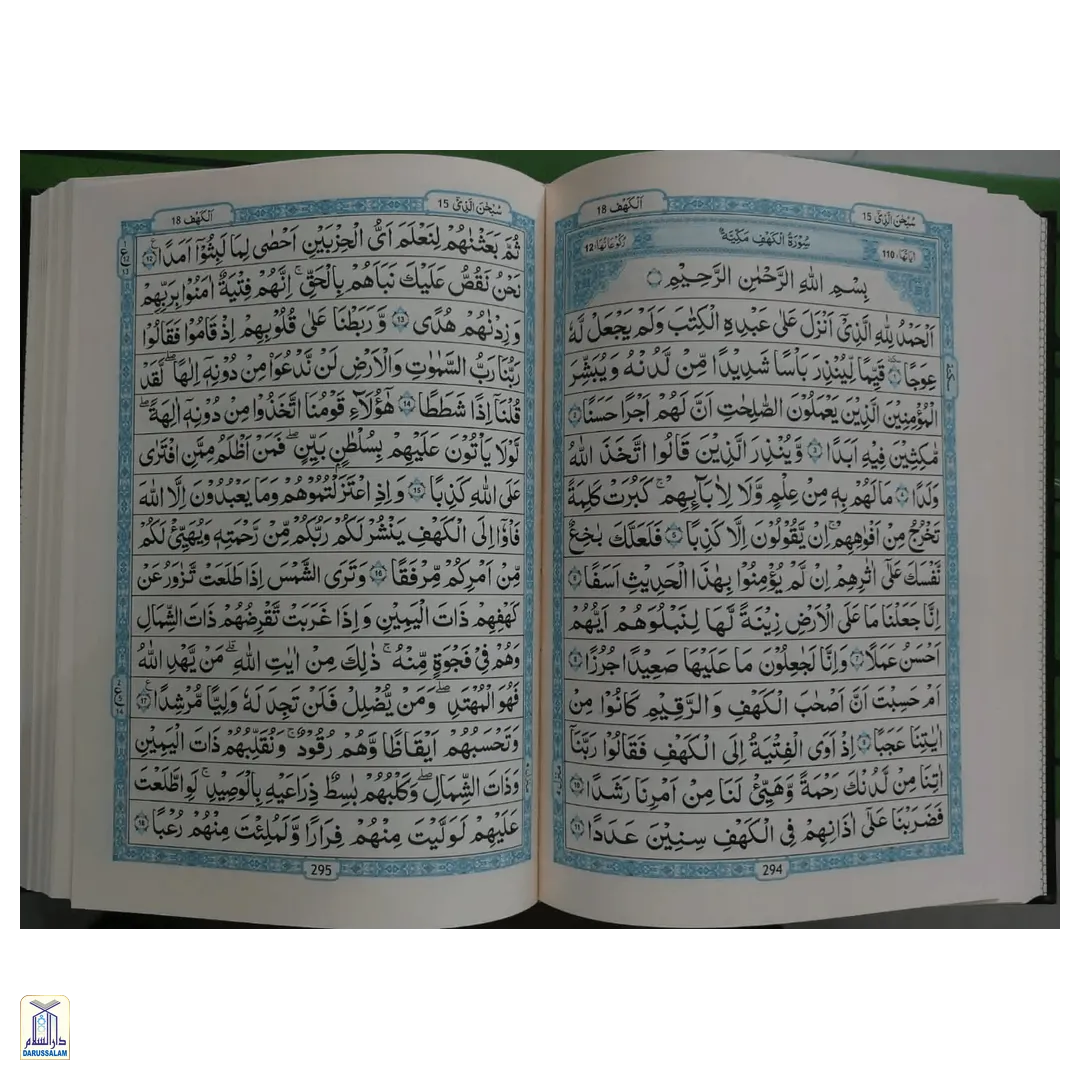 سُبْحٰنَ الَّذِیْۤ 15
اَلْكَهْف 18
اٰيَاتُهَا، 110
سُوْرَةُ الْكَهْفِ مَكِّيَّةٌ
رُكُوْعَاتُهَا، 12
بِسْمِ اللّٰهِ الرَّحْمٰنِ الرَّحِيْمِ
اَلْحَمْدُ لِلّٰهِ الَّذِيْۤ اَنْزَلَ عَلٰى عَبْدِهِ الْكِتٰبَ وَلَمْ يَجْعَلْ لَّهٗ
عِوَجًا ١ قَيِّمًا لِّيُنْذِرَ بَاْسًا شَدِيْدًا مِّنْ لَّدُنْهُ وَيُبَشِّرَ
الْمُؤْمِنِيْنَ الَّذِيْنَ يَعْمَلُوْنَ الصّٰلِحٰتِ اَنَّ لَهُمْ اَجْرًا حَسَنًا 2
مّٰكِثِيْنَ فِيْهِ اَبَدًا 3 وَّيُنْذِرَ الَّذِيْنَ قَالُوا اتَّخَذَ اللّٰهُ
وَلَدًا 4 مَا لَهُمْ بِهٖ مِنْ عِلْمٍ وَّلَا لِاٰبَآىِٕهِمْ ؕ كَبُرَتْ كَلِمَةً
تَخْرُجُ مِنْ اَفْوَاهِهِمْ ؕ اِنْ يَّقُوْلُوْنَ اِلَّا كَذِبًا 5 فَلَعَلَّكَ بَاخِعٌ
نَّفْسَكَ عَلٰۤى اٰثَارِهِمْ اِنْ لَّمْ يُؤْمِنُوْا بِهٰذَا الْحَدِيْثِ اَسَفًا 6
اِنَّا جَعَلْنَا مَا عَلَى الْاَرْضِ زِيْنَةً لَّهَا لِنَبْلُوَهُمْ اَيُّهُمْ
اَحْسَنُ عَمَلًا 7 وَاِنَّا لَجٰعِلُوْنَ مَا عَلَيْهَا صَعِيْدًا جُرُزًا 8
اَمْ حَسِبْتَ اَنَّ اَصْحٰبَ الْكَهْفِ وَالرَّقِيْمِ كَانُوْا مِنْ
اٰيٰتِنَا عَجَبًا 9 اِذْ اَوَى الْفِتْيَةُ اِلَى الْكَهْفِ فَقَالُوْا رَبَّنَاۤ
اٰتِنَا مِنْ لَّدُنْكَ رَحْمَةً وَّهَيِّئْ لَنَا مِنْ اَمْرِنَا رَشَدًا 10
فَضَرَبْنَا عَلٰۤى اٰذَانِهِمْ فِي الْكَهْفِ سِنِيْنَ عَدَدًا 11
294
سُبْحٰنَ الَّذِیْۤ 15
اَلْكَهْف 18
ثُمَّ بَعَثْنٰهُمْ لِنَعْلَمَ اَيُّ الْحِزْبَيْنِ اَحْصٰى لِمَا لَبِثُوْۤا اَمَدًا 12
نَحْنُ نَقُصُّ عَلَيْكَ نَبَاَهُمْ بِالْحَقِّ ؕ اِنَّهُمْ فِتْيَةٌ اٰمَنُوْا بِرَبِّهِمْ
وَزِدْنٰهُمْ هُدًى 13 وَّرَبَطْنَا عَلٰى قُلُوْبِهِمْ اِذْ قَامُوْا فَقَالُوْا
رَبُّنَا رَبُّ السَّمٰوٰتِ وَالْاَرْضِ لَنْ نَّدْعُوَا۟ مِنْ دُوْنِهٖۤ اِلٰهًا لَّقَدْ
قُلْنَاۤ اِذًا شَطَطًا 14 هٰۤؤُلَآءِ قَوْمُنَا اتَّخَذُوْا مِنْ دُوْنِهٖۤ اٰلِهَةً ؕ
لَوْلَا يَاْتُوْنَ عَلَيْهِمْ بِسُلْطٰنٍۭ بَيِّنٍ ؕ فَمَنْ اَظْلَمُ مِمَّنِ افْتَرٰى
عَلَى اللّٰهِ كَذِبًا 15 وَاِذِ اعْتَزَلْتُمُوْهُمْ وَمَا يَعْبُدُوْنَ اِلَّا اللّٰهَ
فَاْوٗۤا اِلَى الْكَهْفِ يَنْشُرْ لَكُمْ رَبُّكُمْ مِّنْ رَّحْمَتِهٖ وَيُهَيِّئْ لَكُمْ
مِّنْ اَمْرِكُمْ مِّرْفَقًا 16 وَتَرَى الشَّمْسَ اِذَا طَلَعَتْ تَّزٰوَرُ عَنْ
كَهْفِهِمْ ذَاتَ الْيَمِيْنِ وَاِذَا غَرَبَتْ تَّقْرِضُهُمْ ذَاتَ الشِّمَالِ
وَهُمْ فِيْ فَجْوَةٍ مِّنْهُ ؕ ذٰلِكَ مِنْ اٰيٰتِ اللّٰهِ ؕ مَنْ يَّهْدِ اللّٰهُ
فَهُوَ الْمُهْتَدِ ۚ وَمَنْ يُّضْلِلْ فَلَنْ تَجِدَ لَهٗ وَلِيًّا مُّرْشِدًا 17
وَتَحْسَبُهُمْ اَيْقَاظًا وَّهُمْ رُقُوْدٌ ۖ وَّنُقَلِّبُهُمْ ذَاتَ الْيَمِيْنِ
وَذَاتَ الشِّمَالِ ۖ وَكَلْبُهُمْ بَاسِطٌ ذِرَاعَيْهِ بِالْوَصِيْدِ ؕ لَوِ اطَّلَعْتَ
عَلَيْهِمْ لَوَلَّيْتَ مِنْهُمْ فِرَارًا وَّلَمُلِئْتَ مِنْهُمْ رُعْبًا 18
295
دار السلام
DARUSSALAM